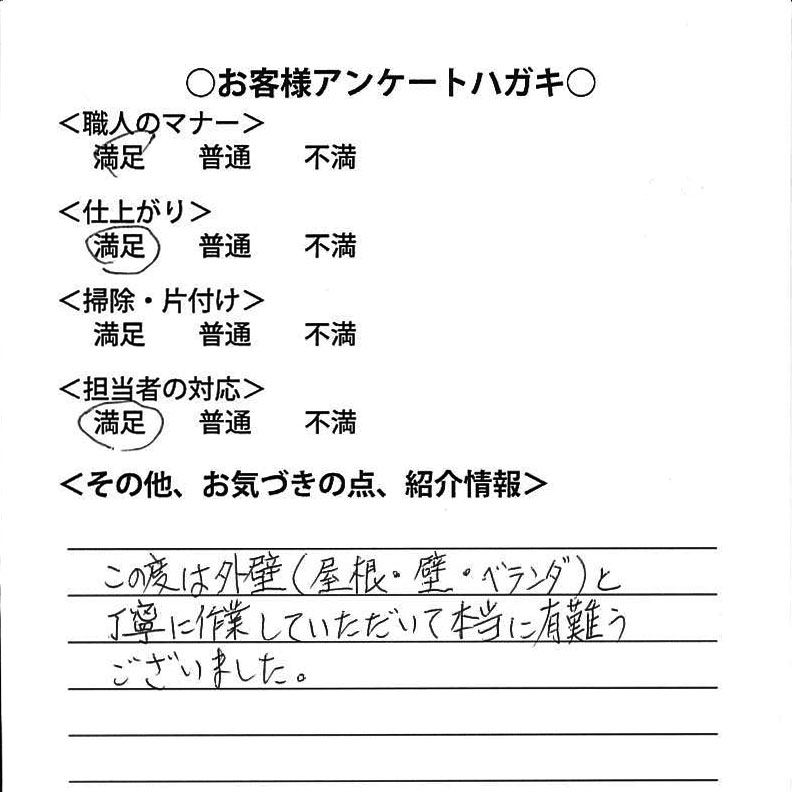 ○お客様アンケートハガキ○
＜職人のマナー＞
満足 普通 不満
＜仕上がり＞
満足 普通 不満
＜掃除・片付け＞
満足 普通 不満
＜担当者の対応＞
満足 普通 不満
＜その他、お気づきの点、紹介情報＞
この度は外壁(屋根・壁・ベランダ)と
丁寧に作業していただいて本当に有難う
ございました。